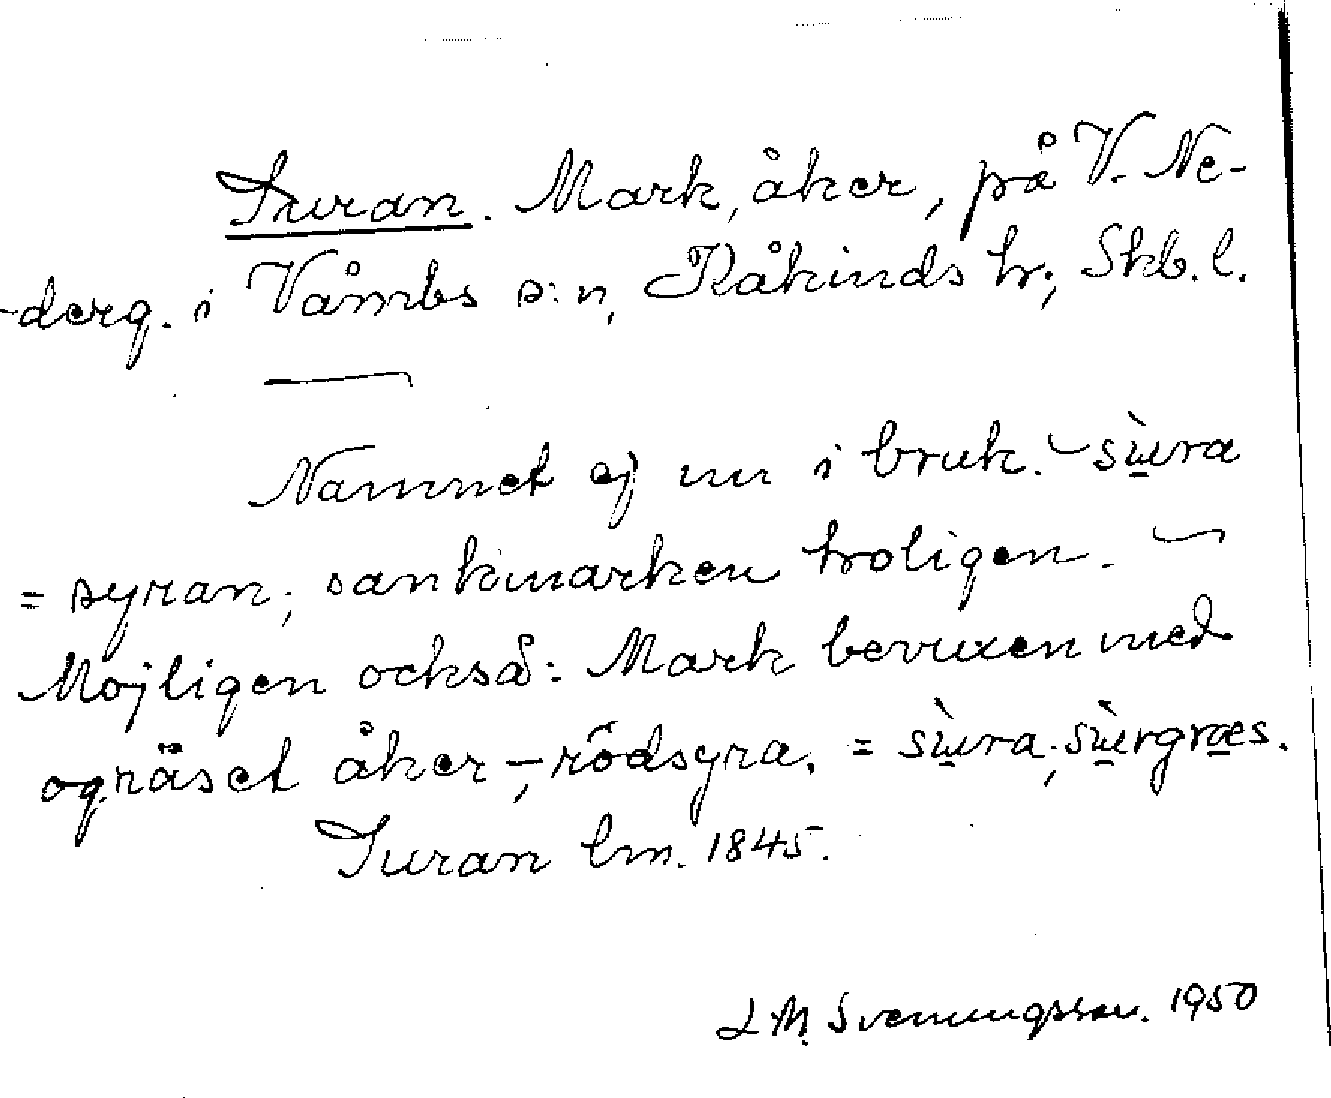 Suran. Mark, åker, på V. Ne-
-derg. i Våmbs s:n, Kåkinds hr, Skb. l.
Namnet ej nu i bruk. – sùra
= syran; sankmarken troligen. –
Möjligen också: Mark bevuxen med
ogräset åker-, rödsyra. = sùra, sùrgræs.
Suran lm. 1845.
L M. Svenungsson. 1950